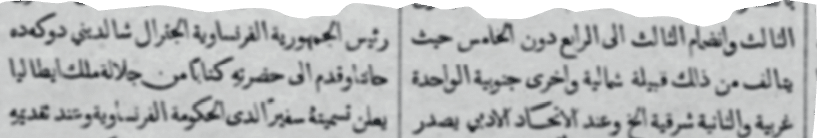 الثالث وانضمام الثالث الى الرابع دون الخامس حيث
يتالف من ذلك قبيلة شمالية واخرى جنوبية الواحدة
غربية والثانية شرقية الخ وعند الاتحاد الادبي يصدر
رئيس الجمهورية الفرنساوية الجنرال شالديني دوكه ده
حاتنا وقدم الى حضرته كتابًا من جلالة ملك ايطاليا
يعلن تسميتهُ سفيرًا لدى الحكومة الفرنساوية وعند تقديمهِ